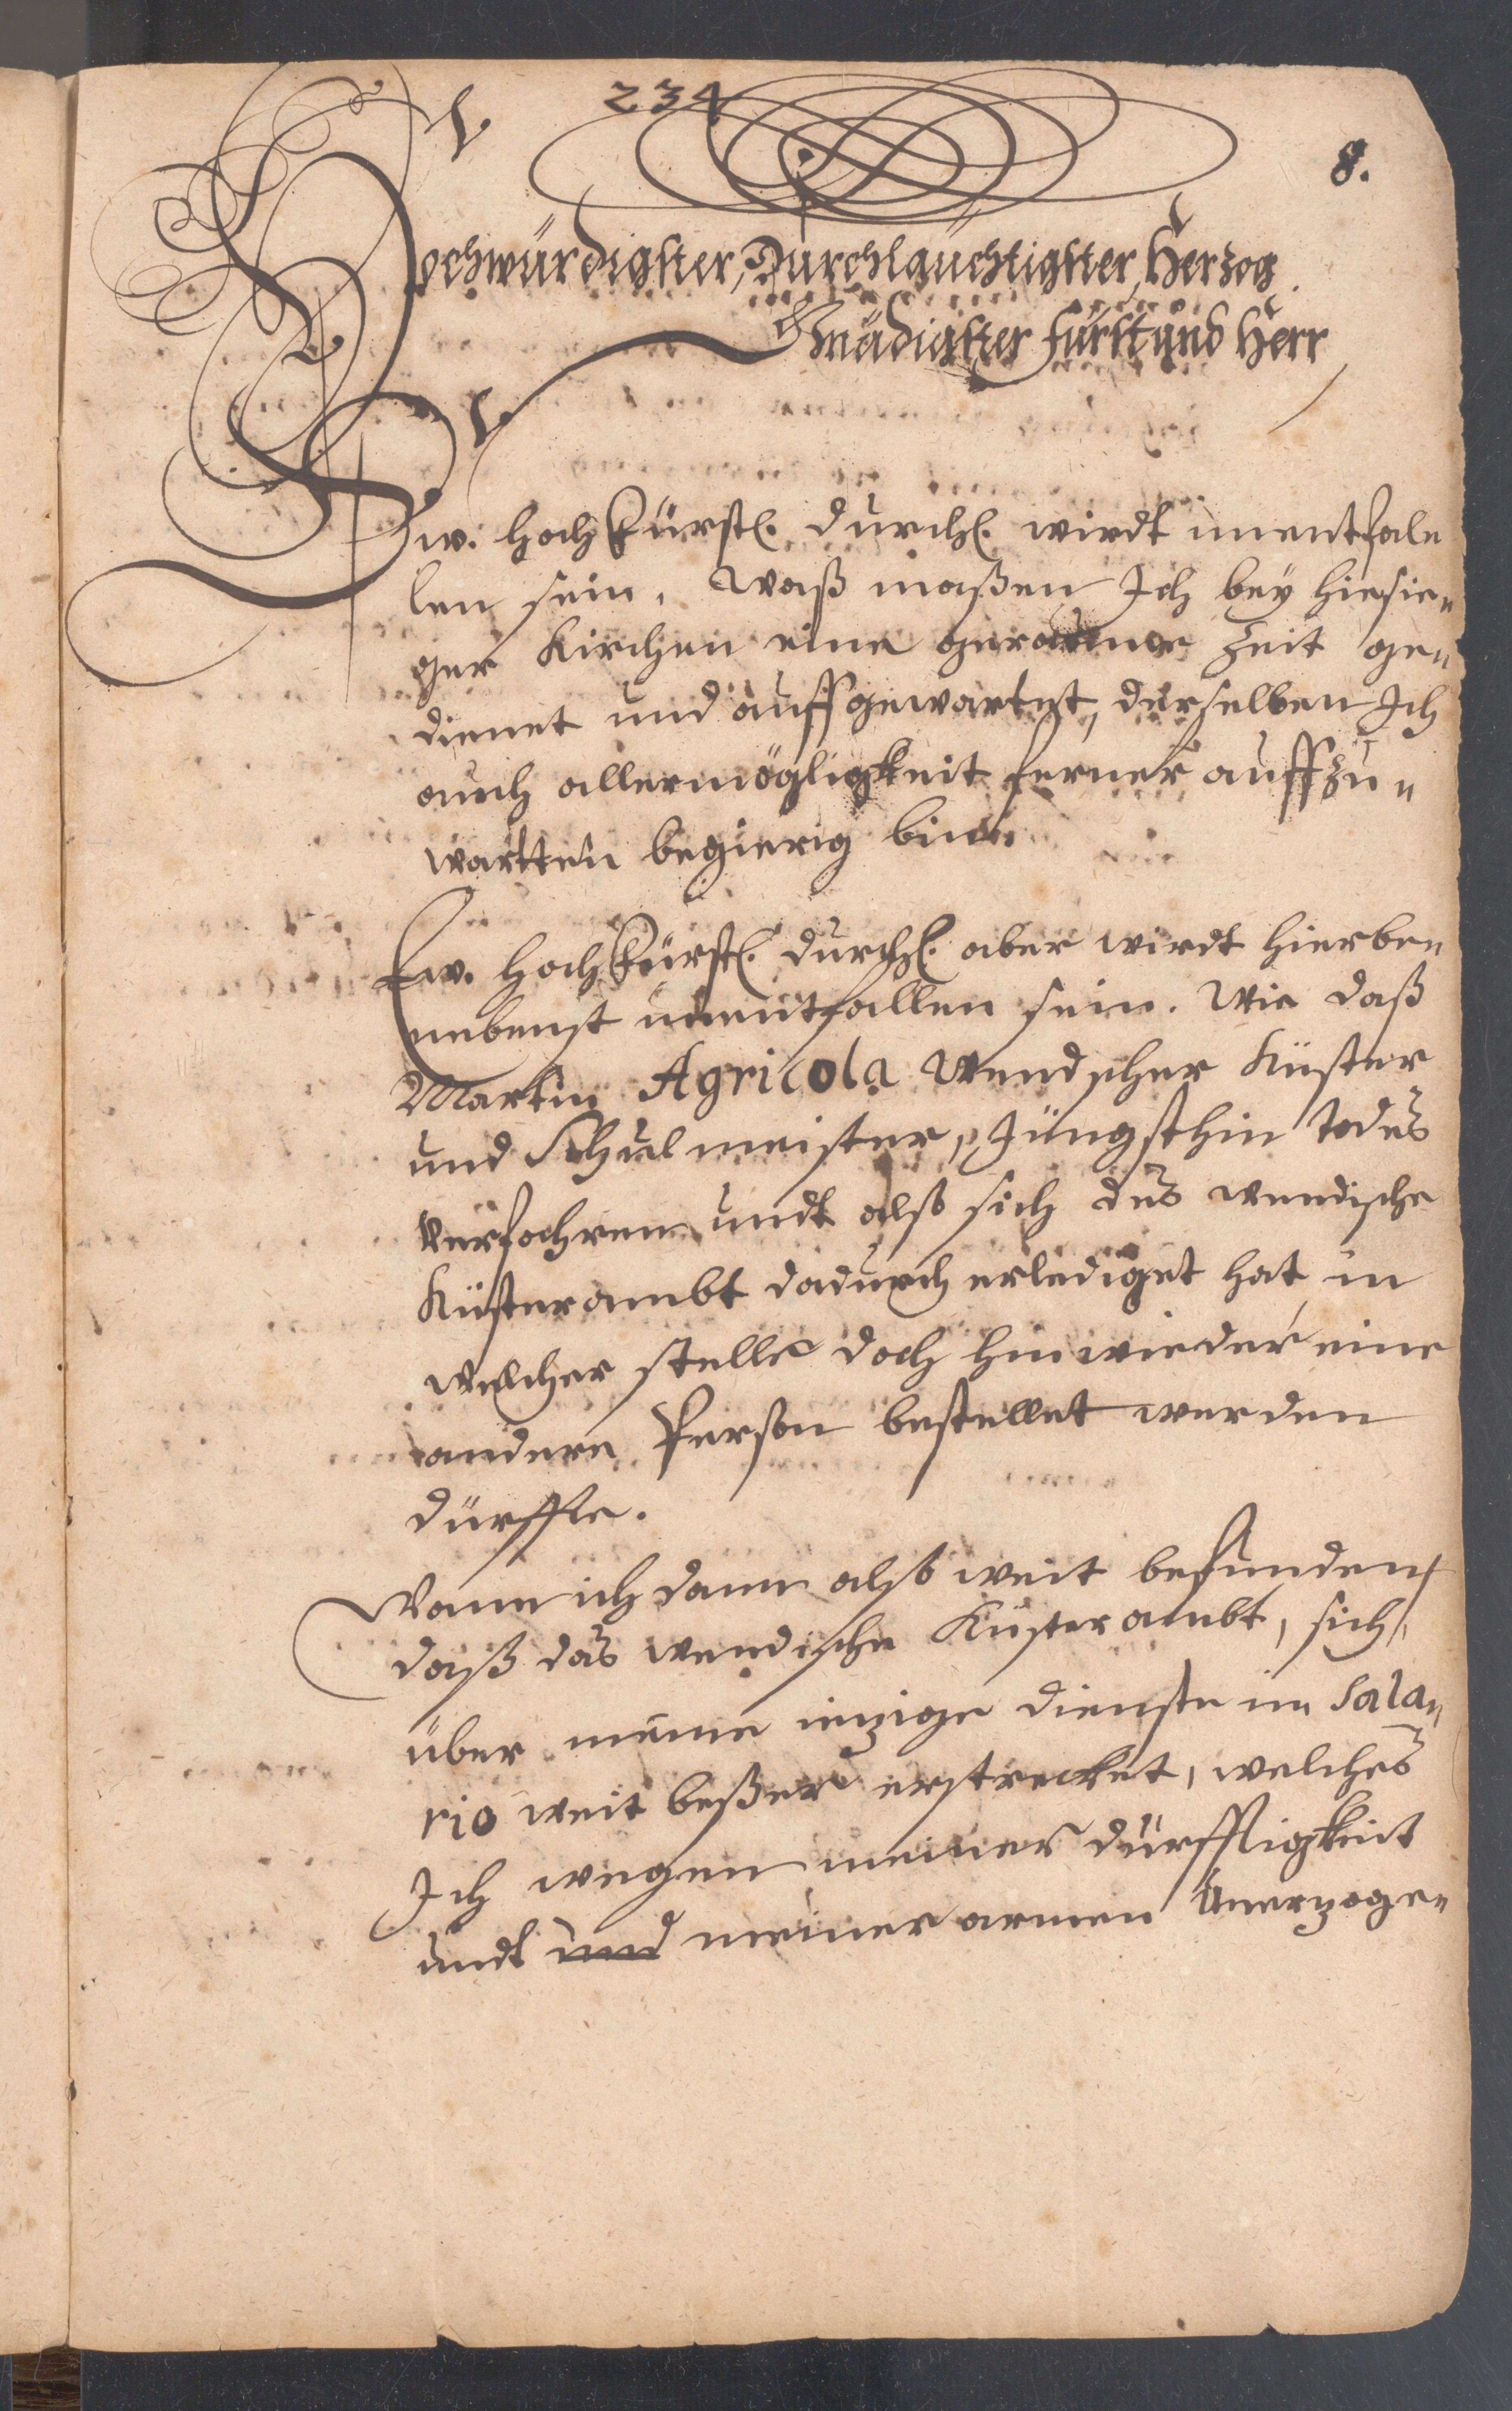 234
8.
Hochwürdigster, Durchläuchtigster, Herzog
Gnädigster Fürst und Herr
Ew. Hochfürstl. Durchl. wirdt unentfal¬
len sein, Waß maßen Ich bey hiesie¬
ger Kirchen eine geraume Zeit ge¬
dienet und auffgewartet, derselben Ich
auch allermögligkeit ferner auffzu¬
wartten begierig bin.
Ew. Hochfürstl. Durchl. aber wirdt hierbe¬
nebenst unentfallen sein. Wie daß
Martin Agricola Wendscher Küster
und Schulmeister, Jüngsthin todes
verfahren undt also sich das wendische
Küsterambt dadurch erlediget hat, in
welcher stelle doch hinwieder eine
andere Person bestellet werden
dürffte.
Wann ich dann also weit befunden,
daß das wendische Küsterambt, sich
über meine ietzige dienste in Sala¬
rio weit beßer erstrecket, welches
Ich wegen meiner dürfftigkeit
undt und meiner armen Unerzoge¬